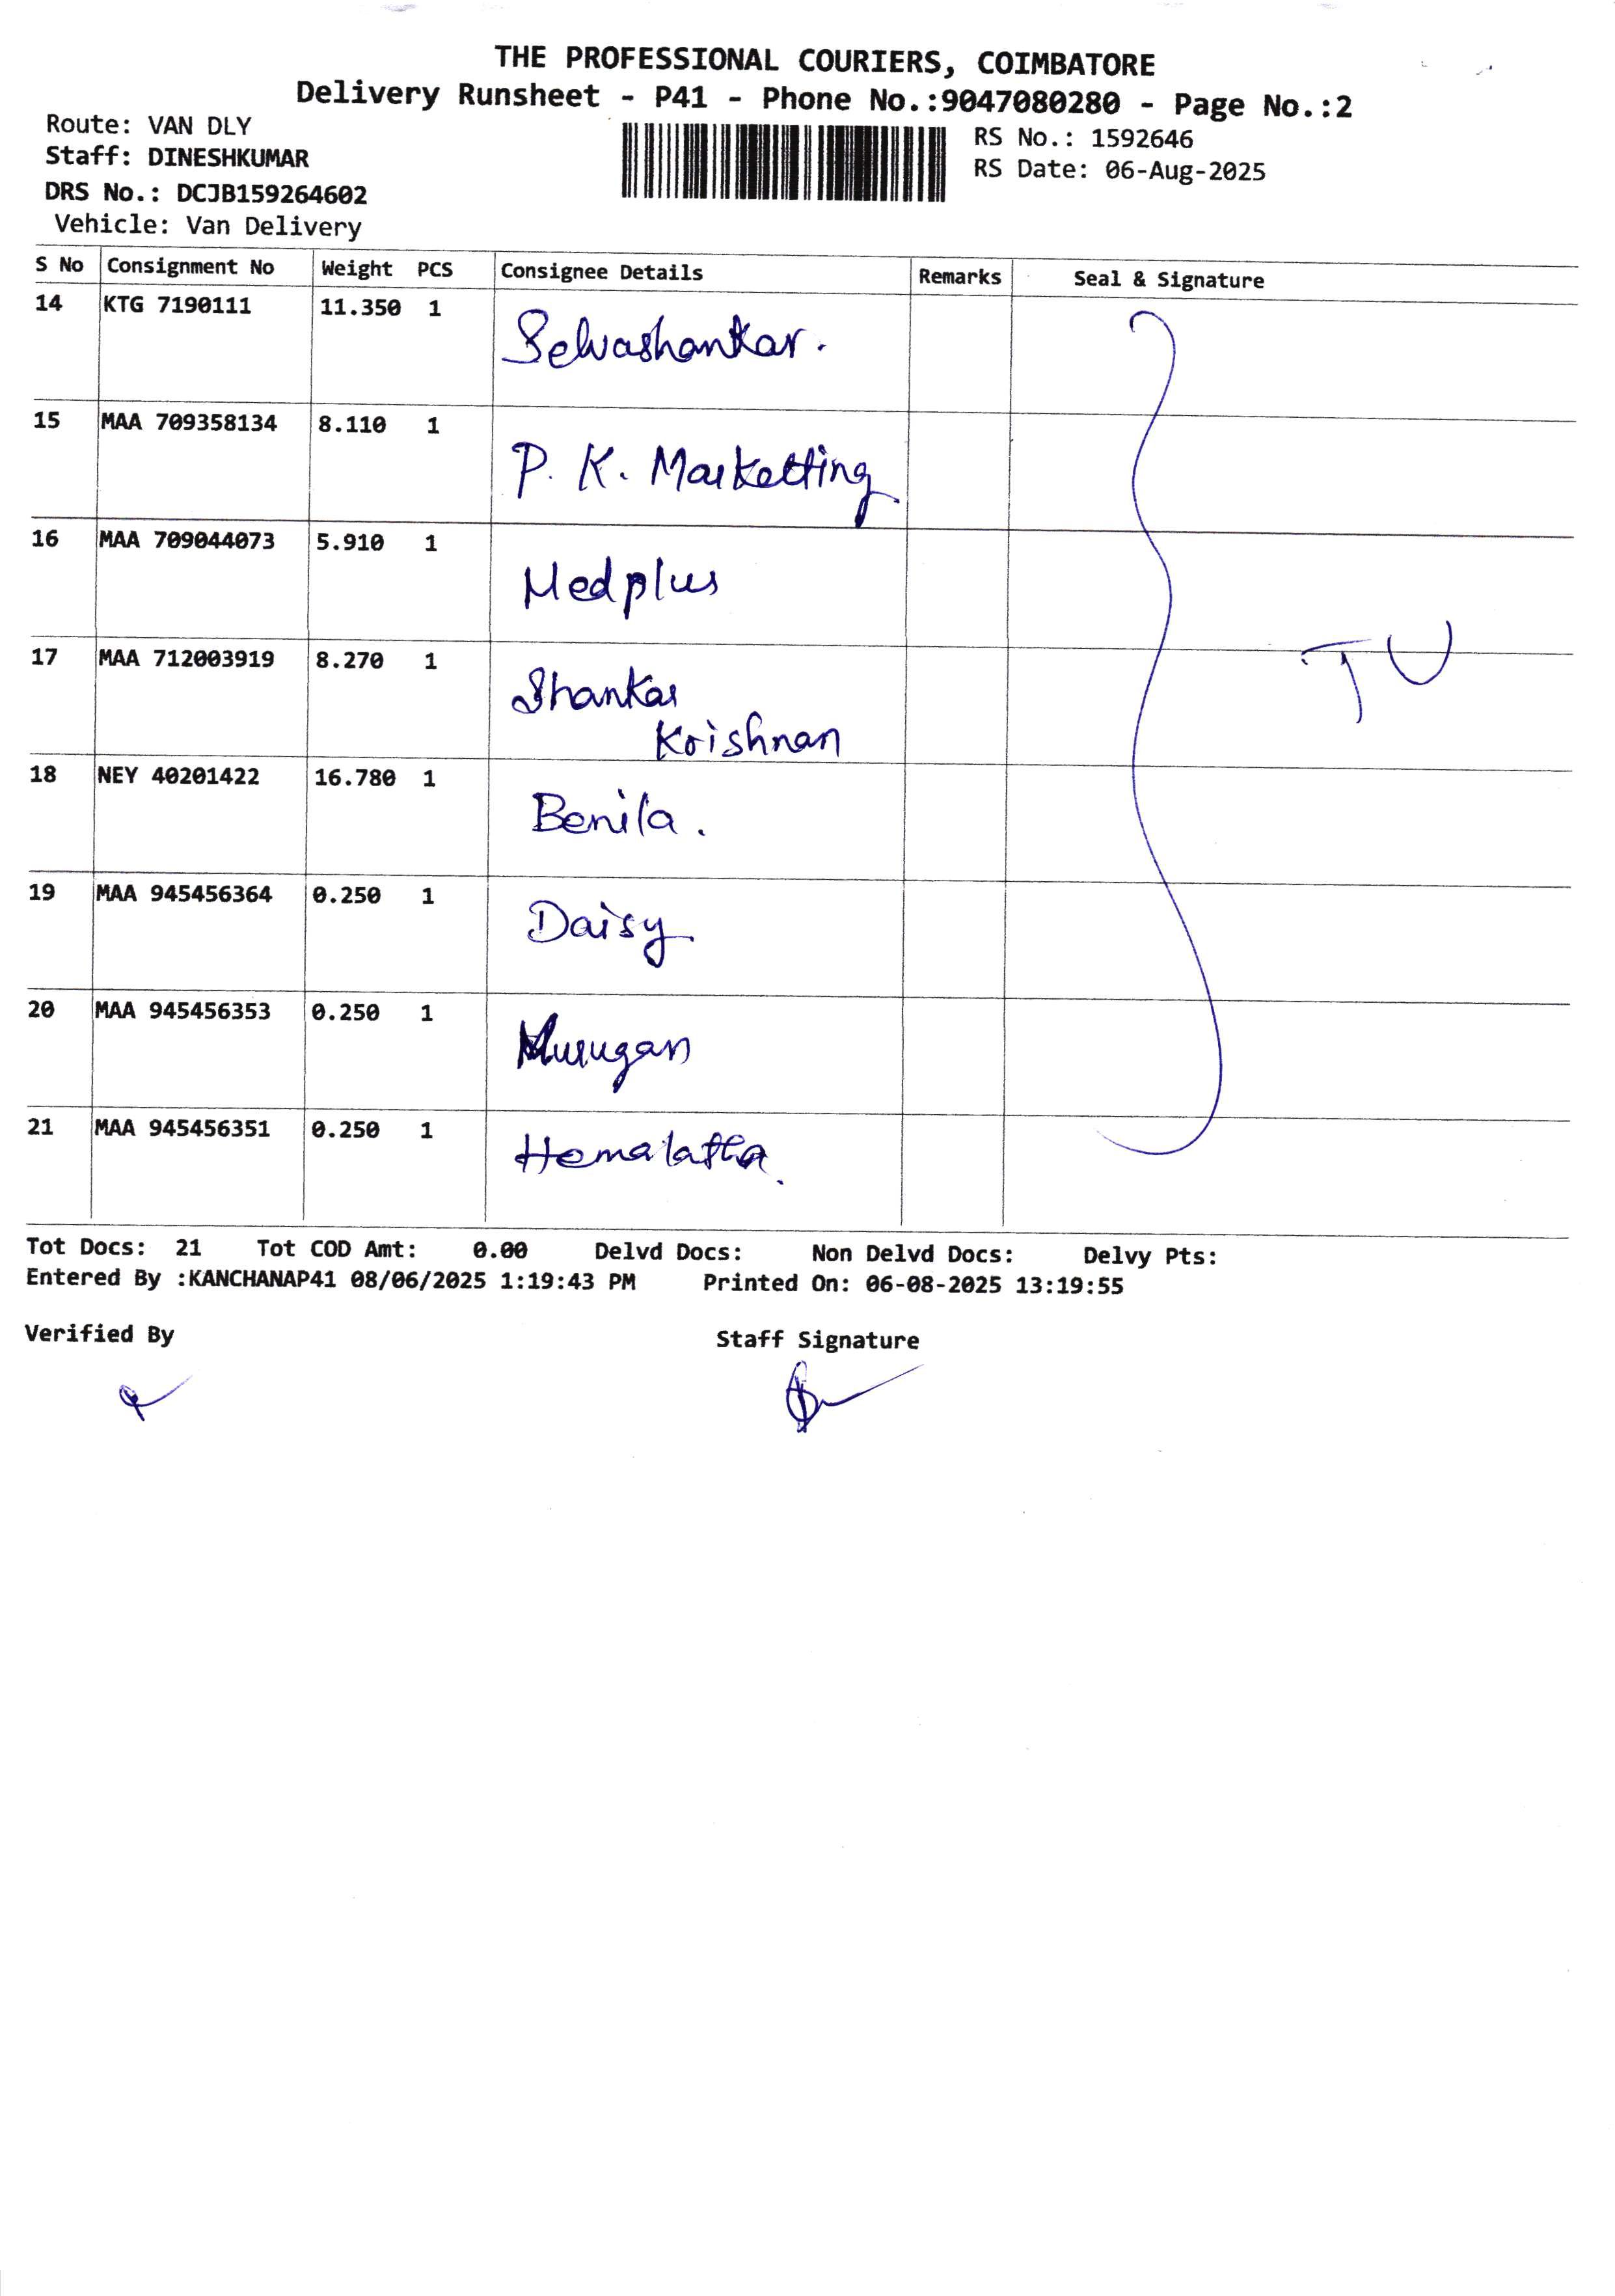 THE PROFESSIONAL COURIERS, COIMBATORE
Delivery Runsheet - P41 - Phone No.:9047080280 - Page No.:2
Route: VAN DLY
Staff: DINESHKUMAR
DRS No.: DCJB159264602
Vehicle: Van Delivery
RS No.: 1592646
RS Date: 06-Aug-2025
S No Consignment No Weight PCS Consignee Details Remarks Seal & Signature
14 KTG 7190111 11.350 1 Selvashankar.
15 MAA 709358134 8.110 1 P. K. Marketting
16 MAA 709044073 5.910 1 Medplus
17 MAA 712003919 8.270 1 Shankar
Krishnan
TU
18 NEY 40201422 16.780 1 Benila.
19 MAA 945456364 0.250 1 Daisy
20 MAA 945456353 0.250 1 Murugan
21 MAA 945456351 0.250 1 Hemalatha.
Tot Docs: 21 Tot COD Amt: 0.00 Delvd Docs: Non Delvd Docs: Delvy Pts:
Entered By :KANCHANAP41 08/06/2025 1:19:43 PM Printed On: 06-08-2025 13:19:55
Verified By Staff Signature